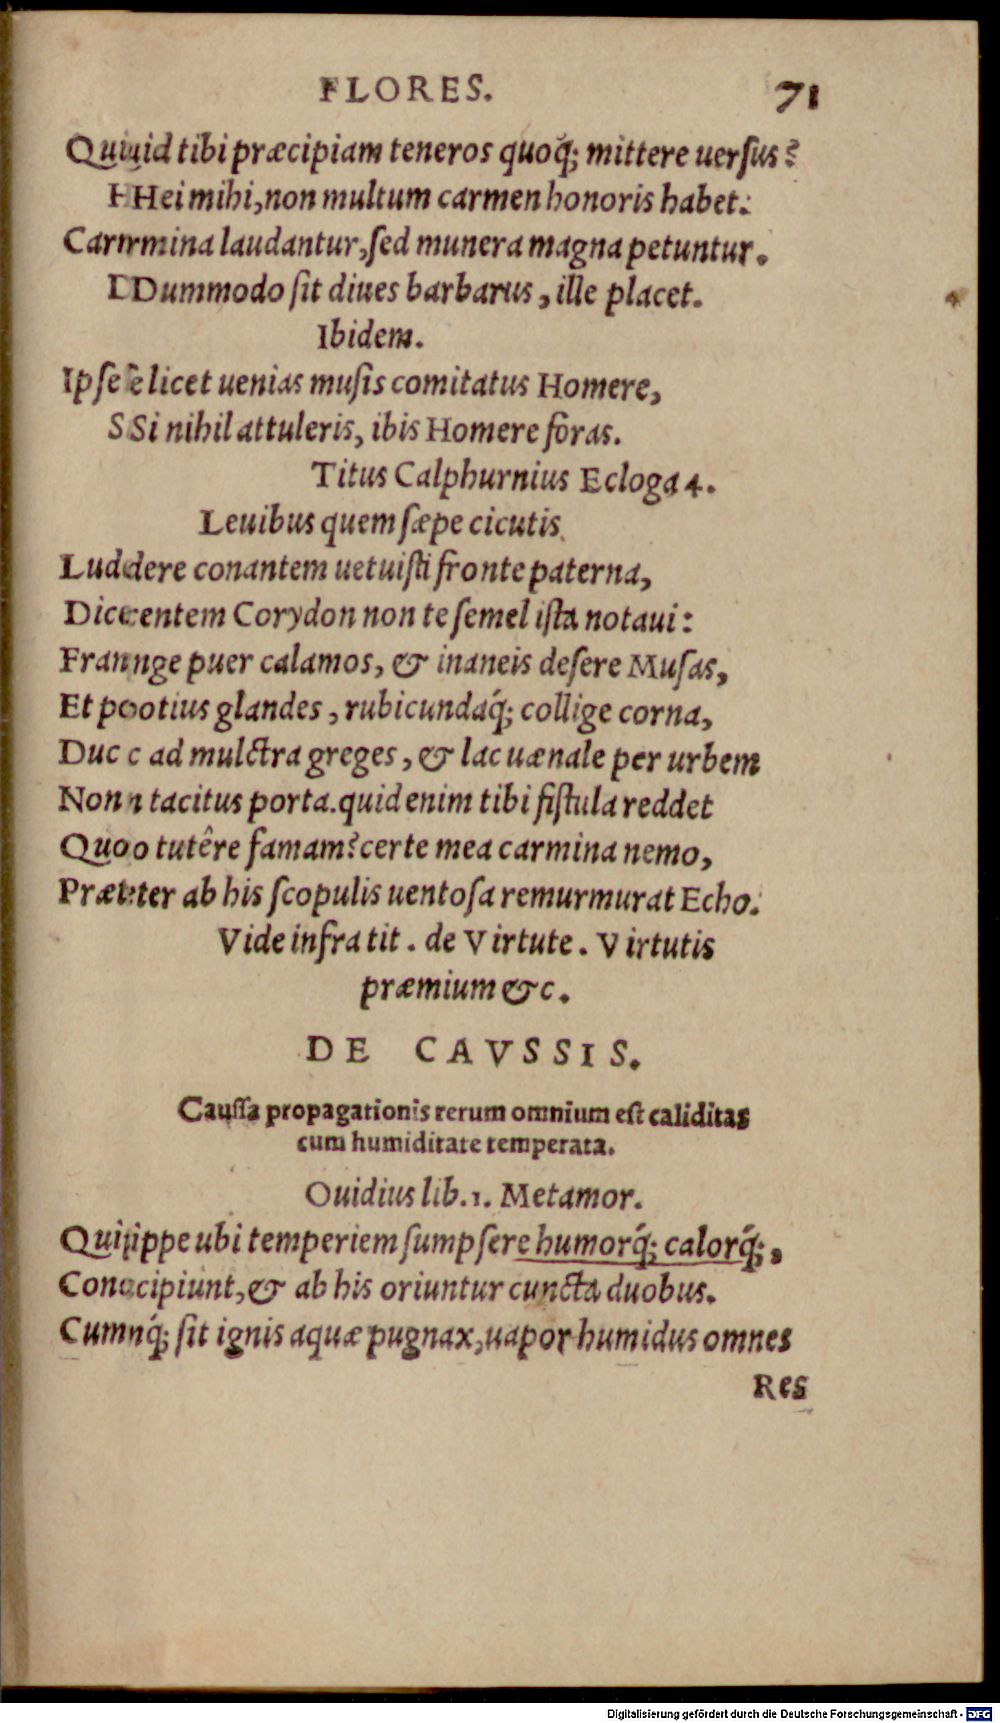 FLORES. 71
Quid tibi præcipiam teneros quoq́; mittere uerſus?
Hei mihi, non multum carmen honoris habet.
Carmina laudantur, ſed munera magna petuntur.
Dummodo ſit diues barbarus, ille placet.
Ibidem.
Ipſe licet uenias muſis comitatus Homere,
Si nihil attuleris, ibis Homere foras.
Titus Calphurnius Ecloga 4.
Leuibus quem ſæpe cicutis
Ludere conantem uetuiſti fronte paterna,
Dicentem Corydon non te ſemel iſta notaui:
Frange puer calamos, & inaneis deſere Muſas,
Et potius glandes, rubicundaq́; collige corna,
Duc ad mulctra greges, & lac uænale per urbem
Non tacitus porta. quid enim tibi fiſtula reddet
Quo tutêre famam? certe mea carmina nemo,
Præter ab his ſcopulis uentoſa remurmurat Echo.
Vide infra tit. de Virtute. Virtutis
præmium &c.
DE CAVSSIS.
Cauſſa propagationis rerum omnium eſt caliditas
cum humiditate temperata.
Ouidius lib. 1. Metamor.
Quippe ubi temperiem ſumpſere humorq́; calorq́;,
Concipiunt, & ab his oriuntur cuncta duobus.
Cumq́; ſit ignis aquæ pugnax, uapor humidus omnes
Res
Digitalisierung gefördert durch die Deutsche Forschungsgemeinschaft - DFG